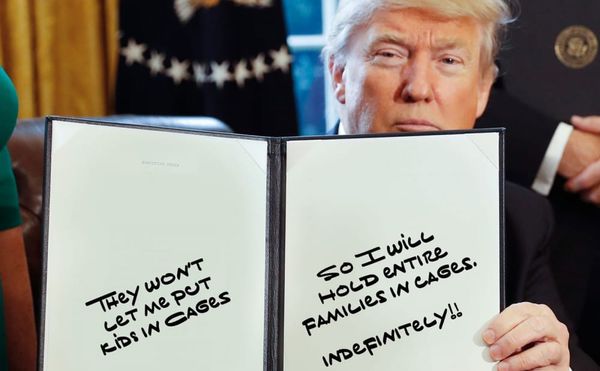 They won't
let me put
kids in cages
So I will
hold entire
families in cages.
indefinitely!!